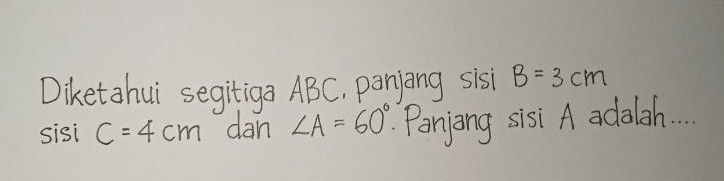 Diketahui segitiga ABC, panjang sisi B = 3 cm
sisi C = 4 cm dan ∠A = 60°. Panjang sisi A adalah....